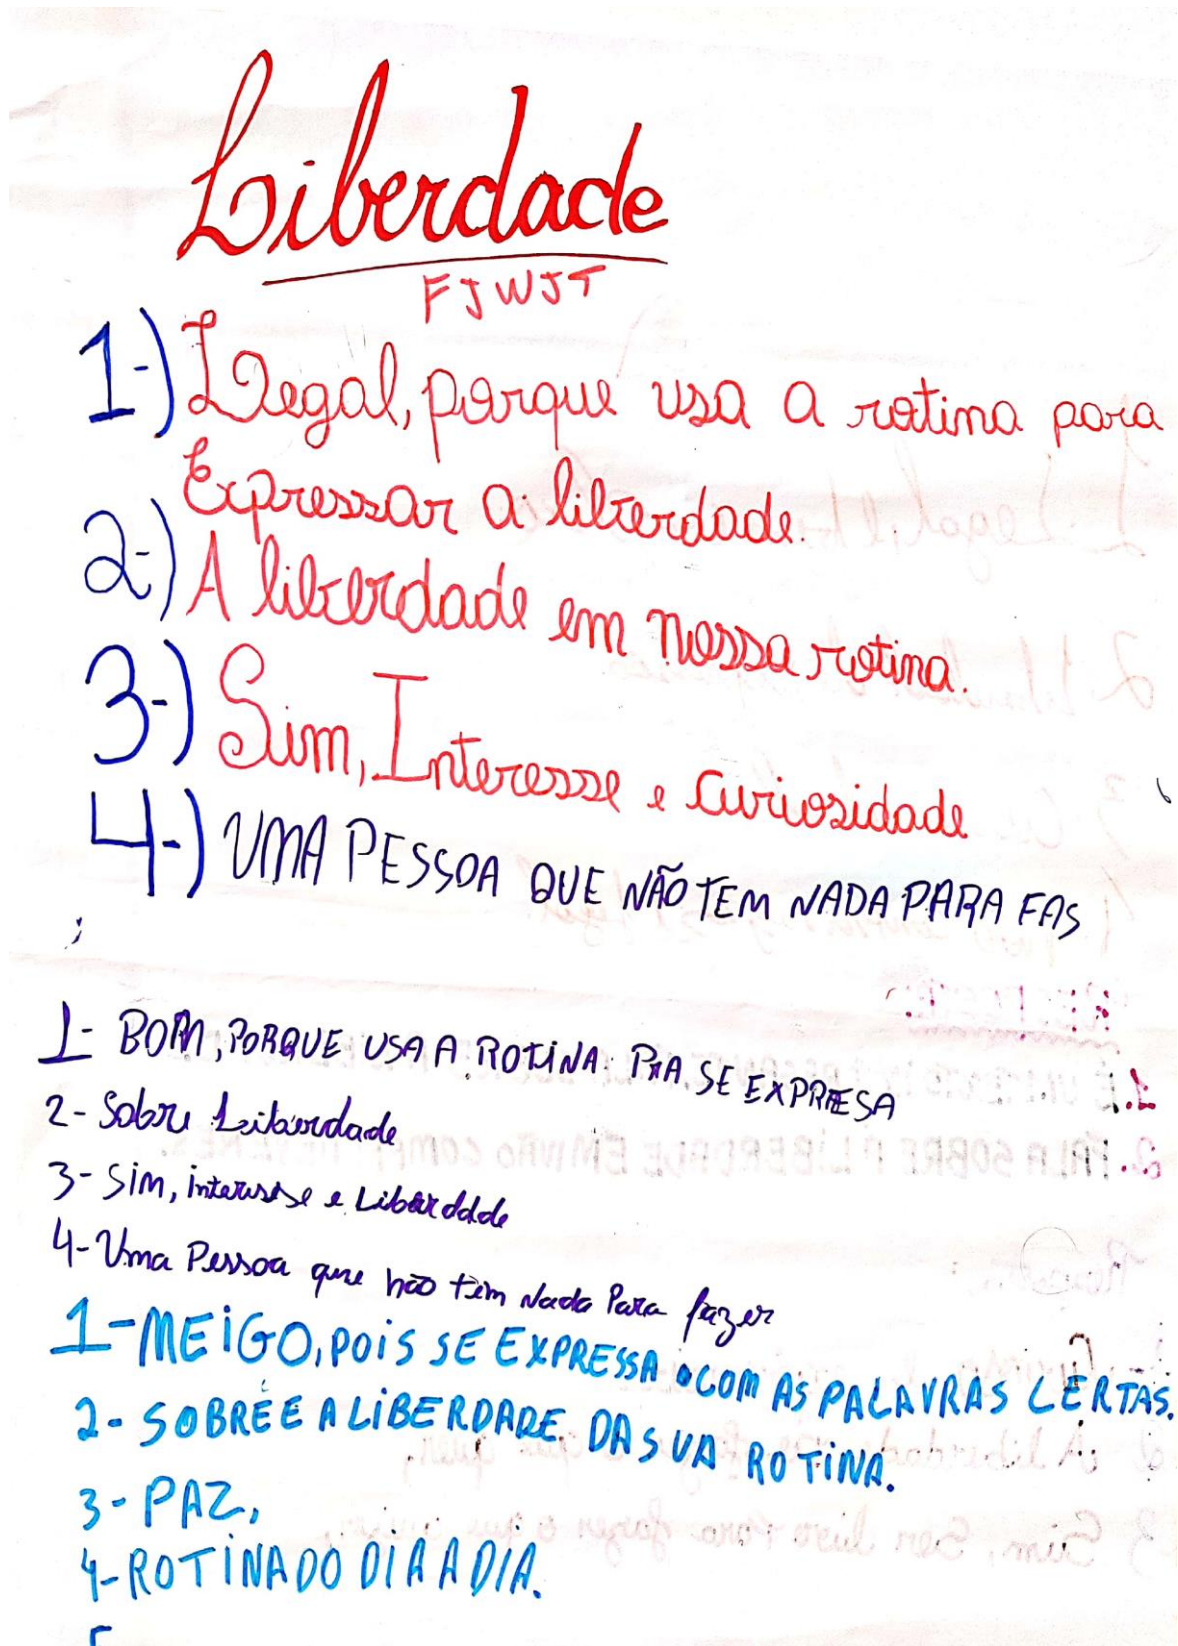 Liberdade
FJWJT
1-) Legal, porque usa a rotina para
Expressar a liberdade.
2-) A liberdade em nossa rotina.
3-) Sim, Interesse e Curiosidade
4-) UMA PESSOA QUE NÃO TEM NADA PARA FAS
1- BOM, PORQUE USA A ROTINA PRA SE EXPRESA
2- Sobre Liberdade
3- Sim, interesse e Liberdade
4- Uma Pessoa que não tem Nada Para fazer
1-MEIGO, POIS SE EXPRESSA COM AS PALAVRAS CERTAS.
2- SOBRE E A LIBERDADE DA SUA ROTINA.
3- PAZ,
4- ROTINA DO DIA A DIA.